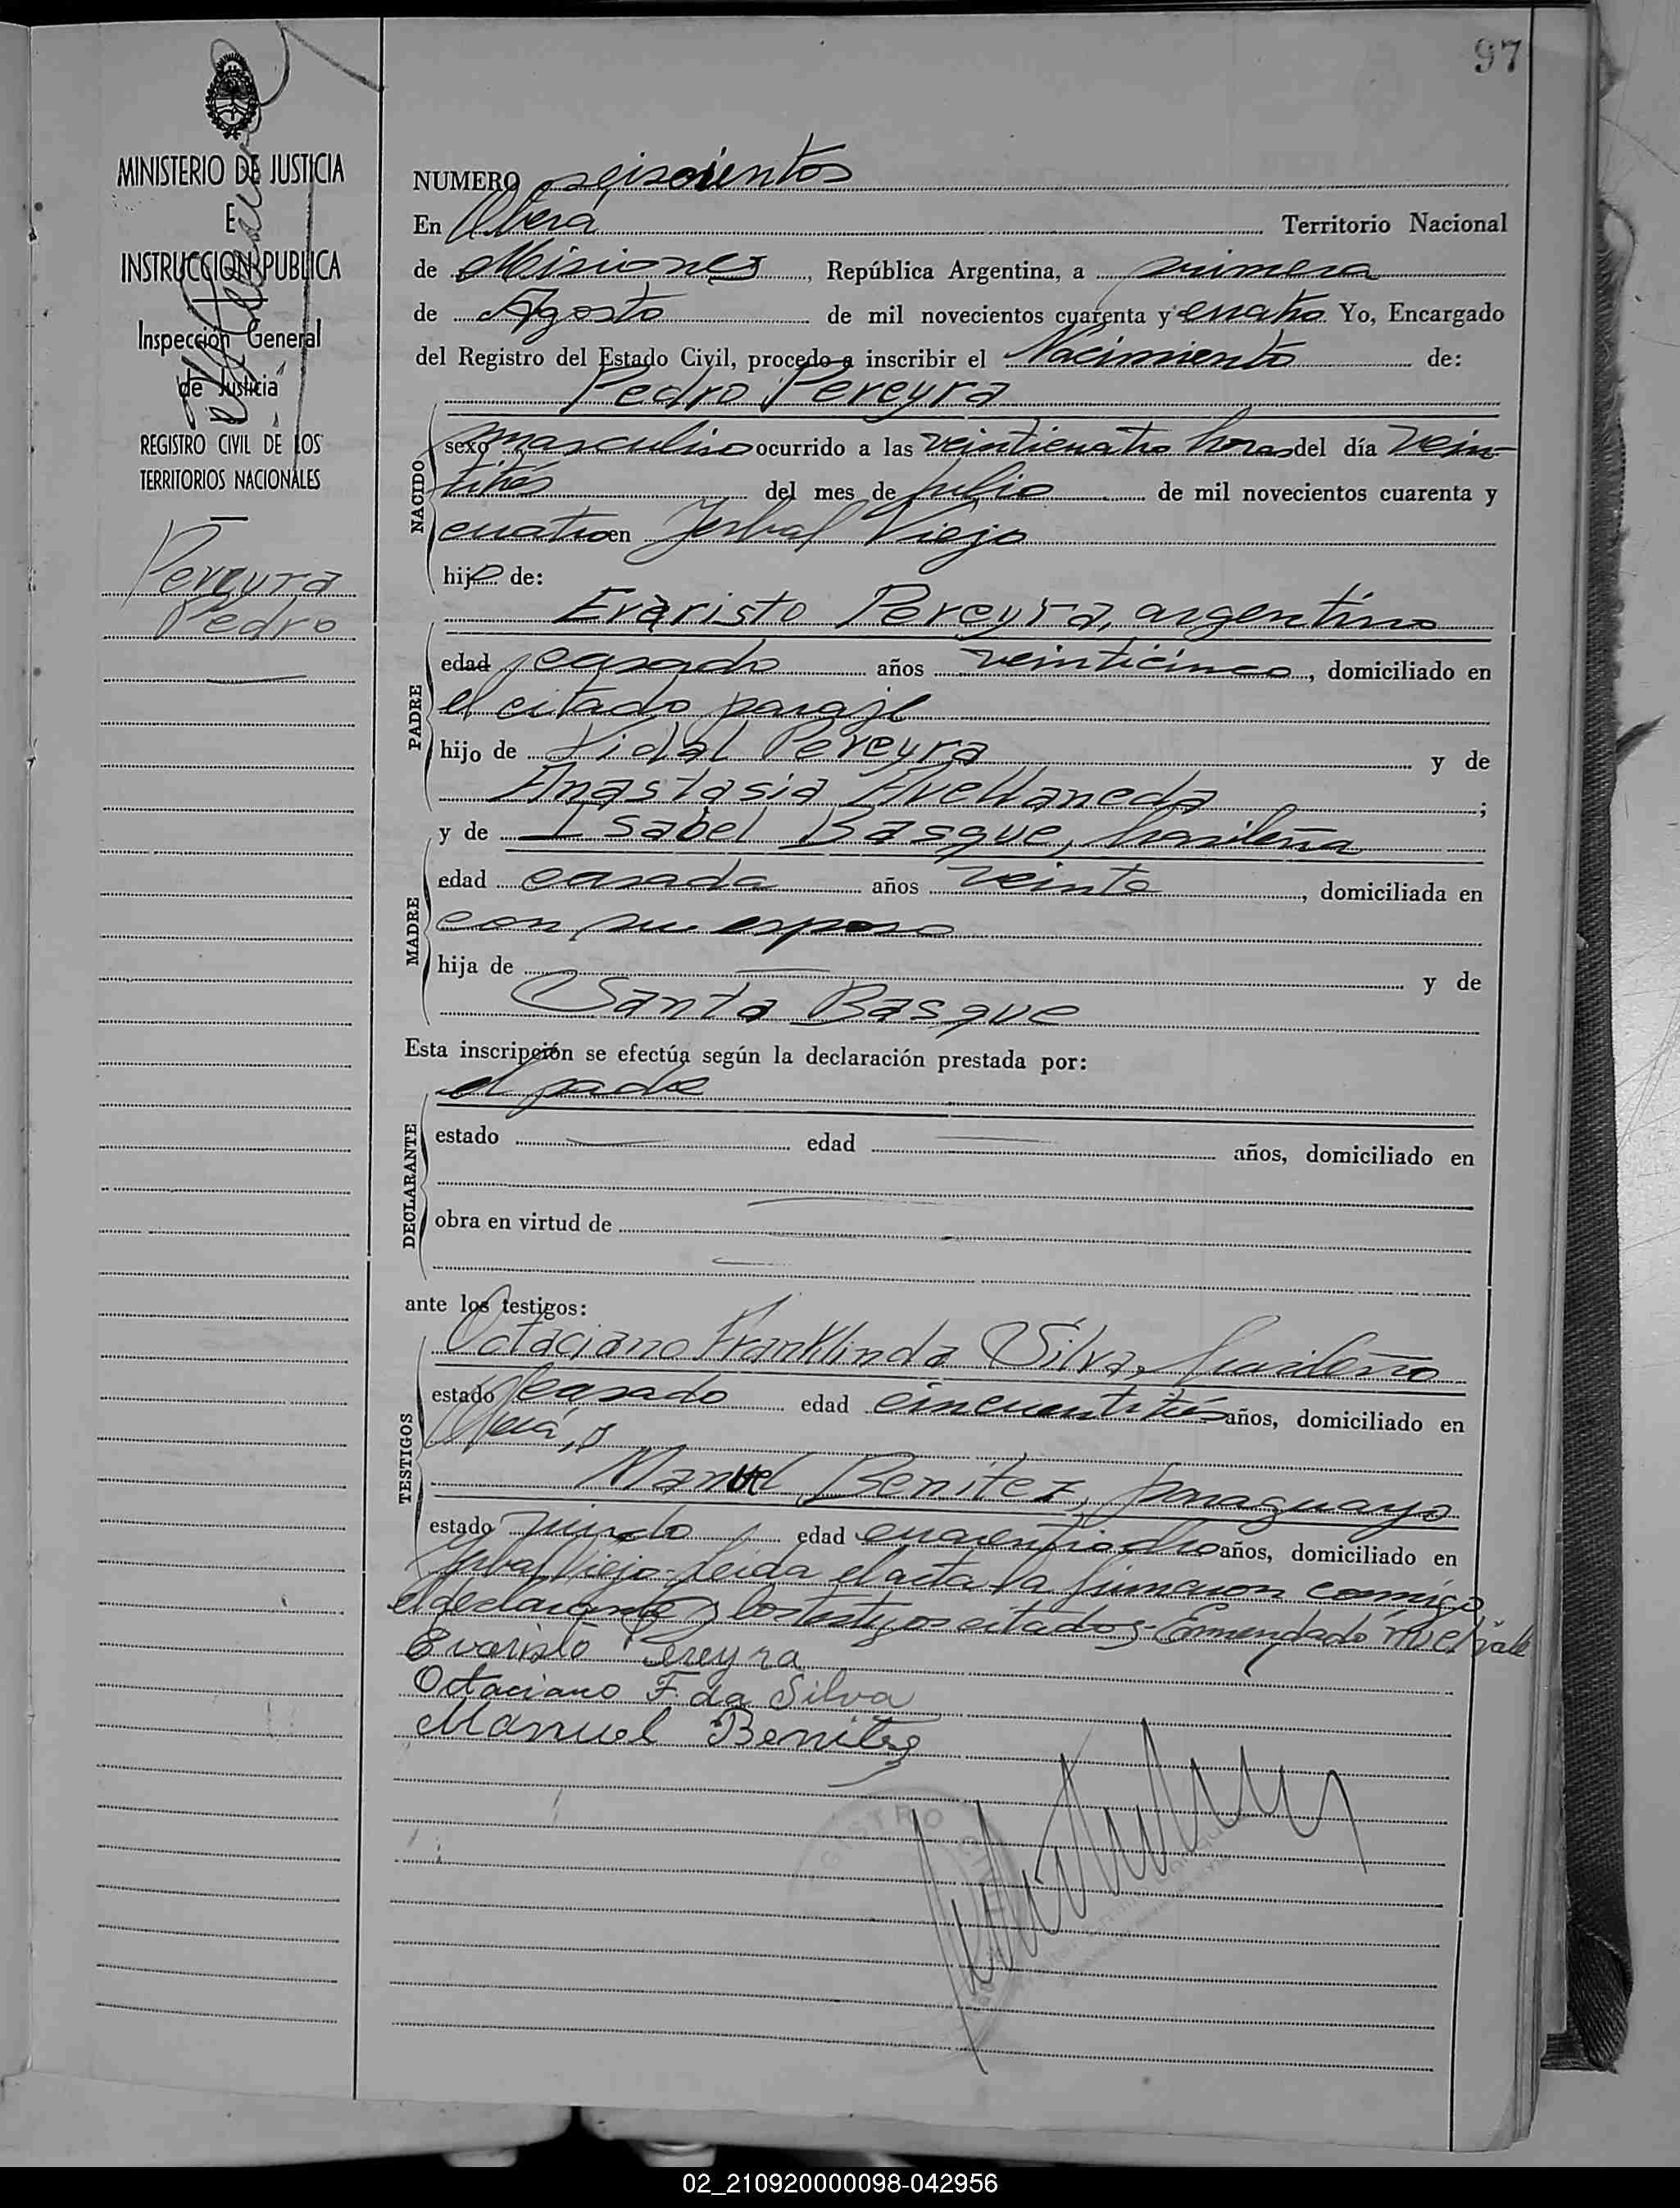 97
MINISTERIO DE JUSTICIA
E
INSTRUCCION PUBLICA
Inspección General
de Justicia
REGISTRO CIVIL DE LOS
TERRITORIOS NACIONALES
Pereyra
Pedro
NUMERO seiscientos
En Oberá Territorio Nacional
de Misiones, República Argentina, a primero
de Agosto de mil novecientos cuarenta y cuatro Yo, Encargado
del Registro del Estado Civil, procedo a inscribir el Nacimiento de:
Pedro Pereyra
NACIDO
sexo masculino ocurrido a las veinticuatro horas del día vein-
titrés del mes de julio de mil novecientos cuarenta y
cuatro en Yerbal Viejo
hijo de:
Evaristo Pereyra, argentino
PADRE
edad casado años veinticinco, domiciliado en
el citado paraje
hijo de Vidal Pereyra y de
Anastasia Avellaneda;
y de Isabel Basque, brasileña
MADRE
edad casada años veinte, domiciliada en
con su esposo
hija de y de
Santa Basque
Esta inscripción se efectúa según la declaración prestada por:
el padre
DECLARANTE
estado edad años, domiciliado en
obra en virtud de
ante los testigos:
Octaciano Franklin da Silva, brasileño
TESTIGOS
estado casado edad cincuentitrés años, domiciliado en
Oberá, y
Manuel Benitez, paraguayo
estado viudo edad cuarentiocho años, domiciliado en
Yerbal Viejo. Leida el acta la firmaron conmigo
el declarante y los testigos citados. Enmendado vale
Evaristo Pereyra
Octaciano F. da Silva
Manuel Benitez
REGISTRO CIVIL
02_210920000098-042956